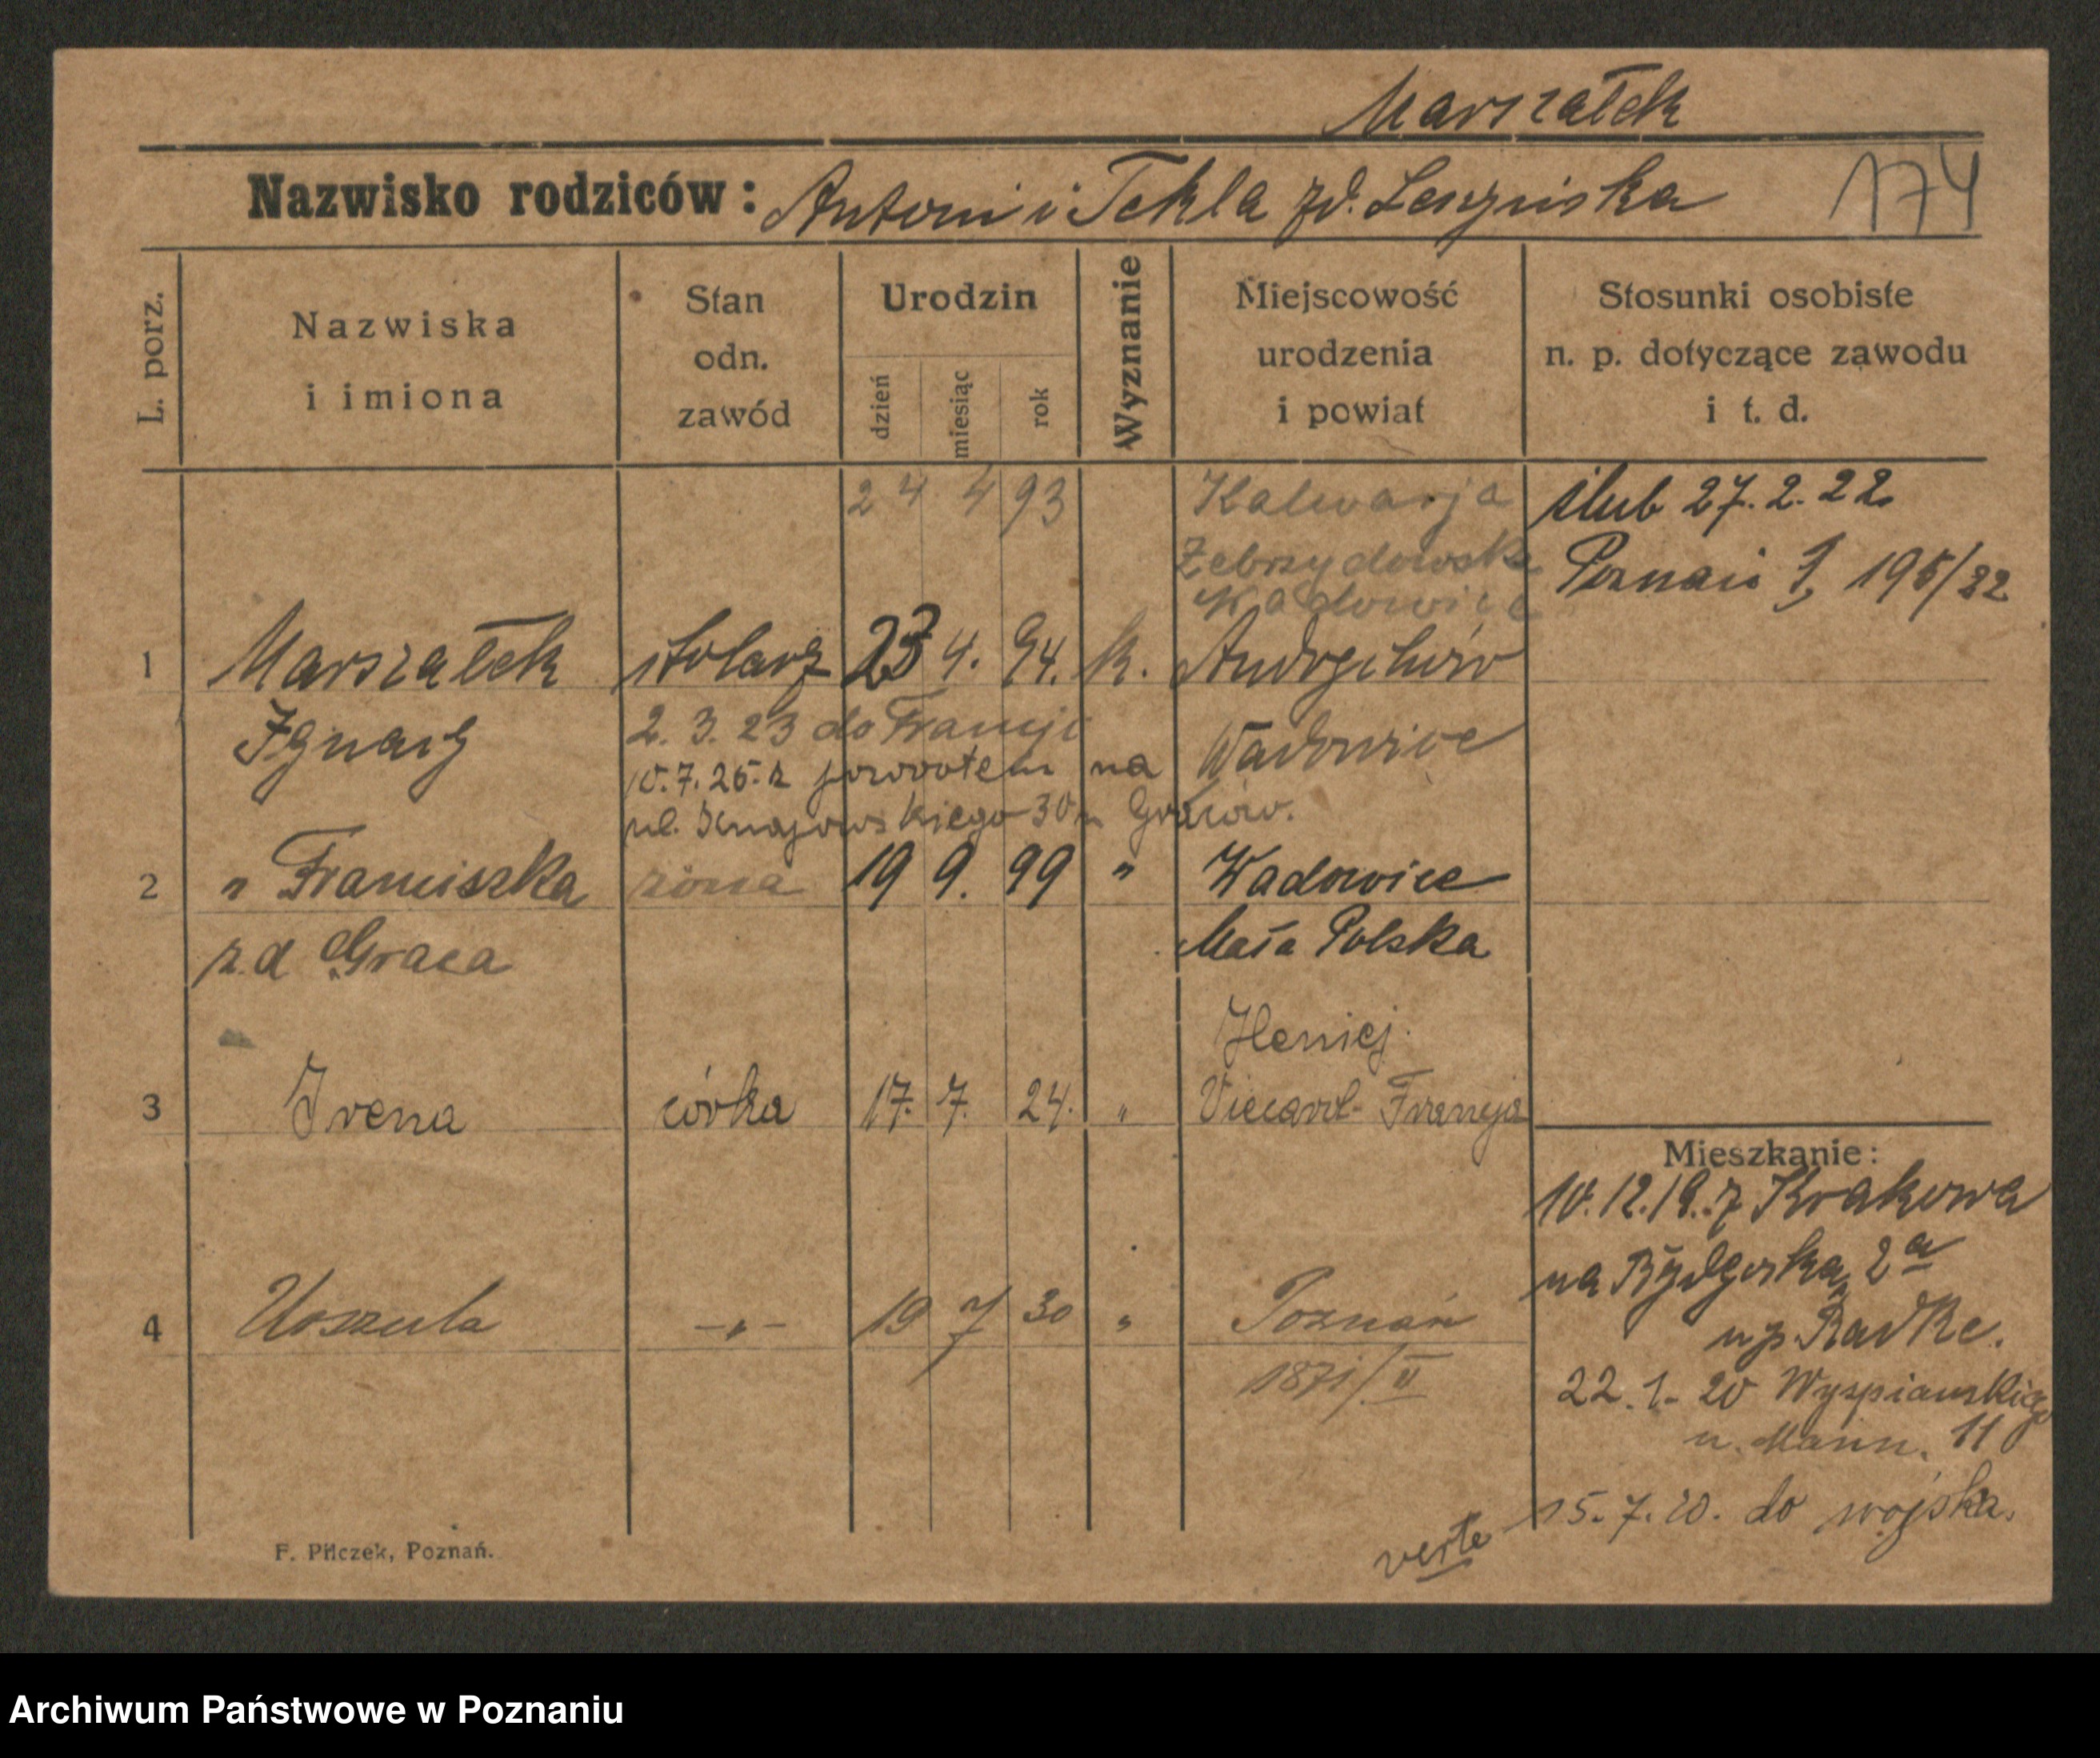 Marszałek
Nazwisko rodziców: Antoni i Tekla zd. Leszyńska 174
L. porz.
Nazwiska
i imiona
Stan
odn.
zawód
Urodzin
dzień
miesiąc
rok
Wyznanie
Miejscowość
urodzenia
i powiat
Stosunki osobiste
n. p. dotyczące zawodu
i t. d.
24 4 93 Kalwarja ślub 27.2.22
Zebrzydowsk Poznań I, 195/22
Wadowice
1 Marszałek stolarz 23 4. 94. k. Andrychów
Ignacy 2.3.23 do Francji Wadowice
10.7.26. z powrotem na
ul. 30 Graców.
2 " Franciszka żona 19 9. 99 " Wadowice
z.d Graca Mała Polska
Heniej.
3 Irena córka 17. 7. 24. " Viecard- Francja
Mieszkanie:
10.12.19. z Krakowa
na Bydgoska 2a
up Radke.
4 Urszula -"- 19 7 30 " Poznań
1871/II
22.1.20 Wyspiańskiego
u. Mann. 11
15.7.20. do wojska.
verte
F. Pilczek, Poznań.
Archiwum Państwowe w Poznaniu